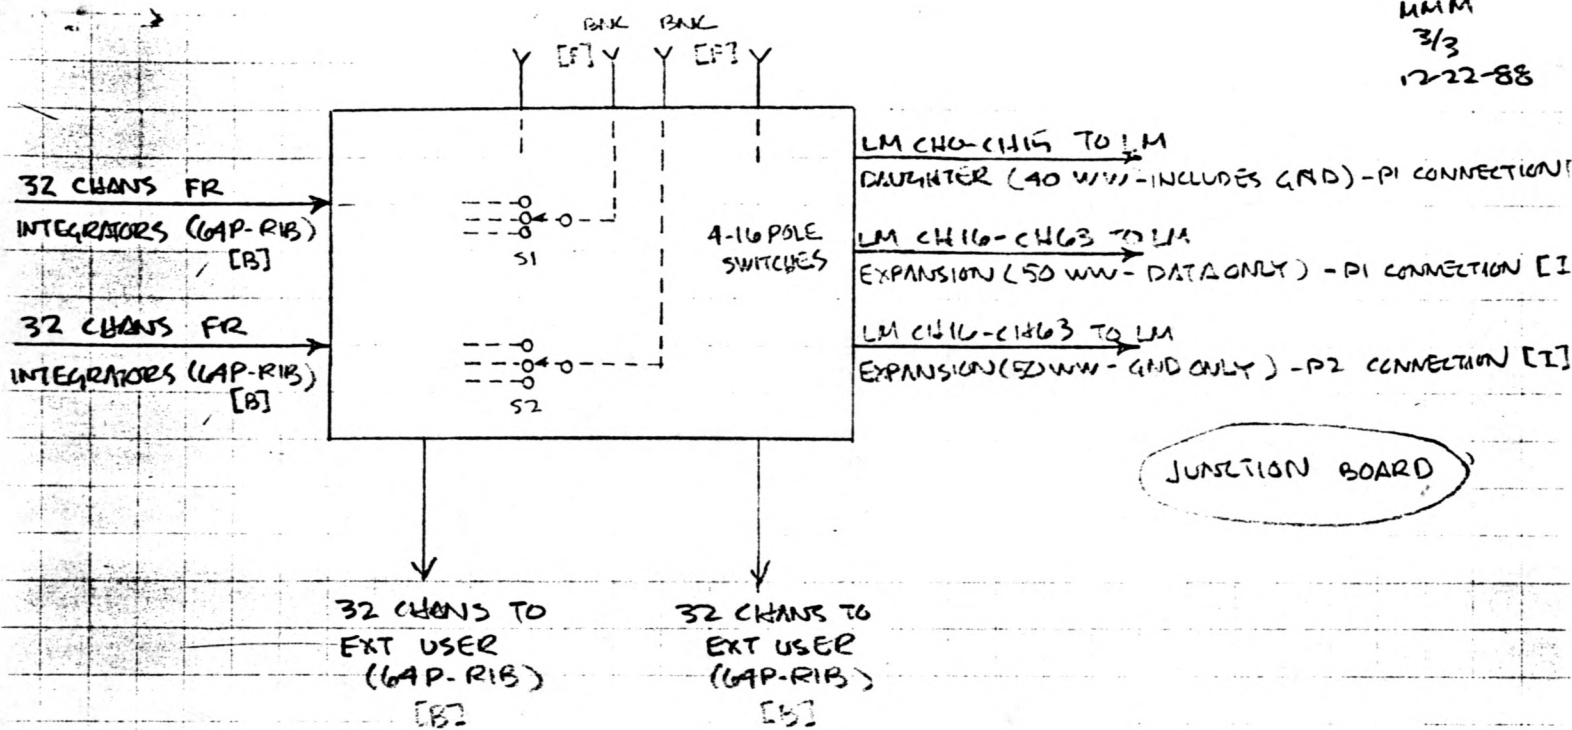 MMM
3/3
12-22-88
BNC BNC
[F] [F]
32 CHANS FR
INTEGRATORS (64P-RIB)
[B]
32 CHANS FR
INTEGRATORS (64P-RIB)
[B]
S1
S2
4-16 POLE
SWITCHES
LM CH0-CH15 TO LM
DAUGHTER (40 WW-INCLUDES GND)-P1 CONNECTION
LM CH16-CH63 TO LM
EXPANSION (50 WW-DATA ONLY)-P1 CONNECTION [I
LM CH16-CH63 TO LM
EXPANSION (50 WW-GND ONLY)-P2 CONNECTION [I]
JUNCTION BOARD
32 CHANS TO
EXT USER
(64P-RIB)
[B]
32 CHANS TO
EXT USER
(64P-RIB)
[B]